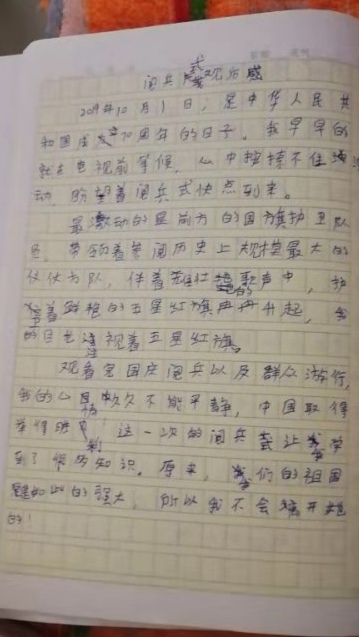 阅兵式观后感
2019年10月1日，是中华人民共
和国成立70周年的日子。我早早的
就在电视前等候，心中按捺不住激
动，盼望着阅兵式快点到来。
最激动的是前方的国旗护卫队
带领着阅历史上规模最大的
仪仗方队，伴着歌声中，护
着鲜艳的五星红旗冉冉升起，我
的目光注视着五星红旗。
观看完国庆阅兵以及群众游行，
我的心久久不能平静，中国取得
举得胜利！这一次的阅兵式让我学
到了很多知识。原来，我们的祖国
是如此的强大，所以我不会离开她
的！